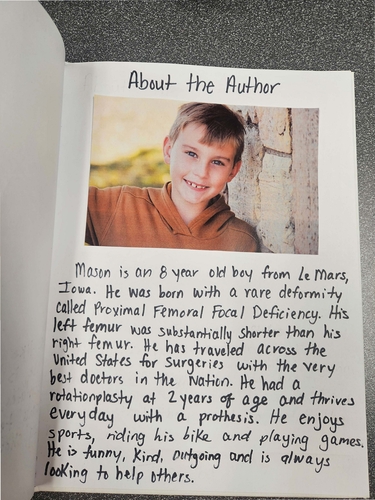 About the Author
Mason is an 8 year old boy from Le Mars,
Iowa. He was born with a rare deformity
called Proximal Femoral Focal Deficiency. His
left femur was substantially shorter than his
right femur. He has traveled across the
United States for Surgeries with the very
best doctors in the Nation. He had a
rotationplasty at 2 years of age and thrives
everyday with a prothesis. He enjoys
sports, riding his bike and playing games.
He is funny, Kind, outgoing and is always
looking to help others.